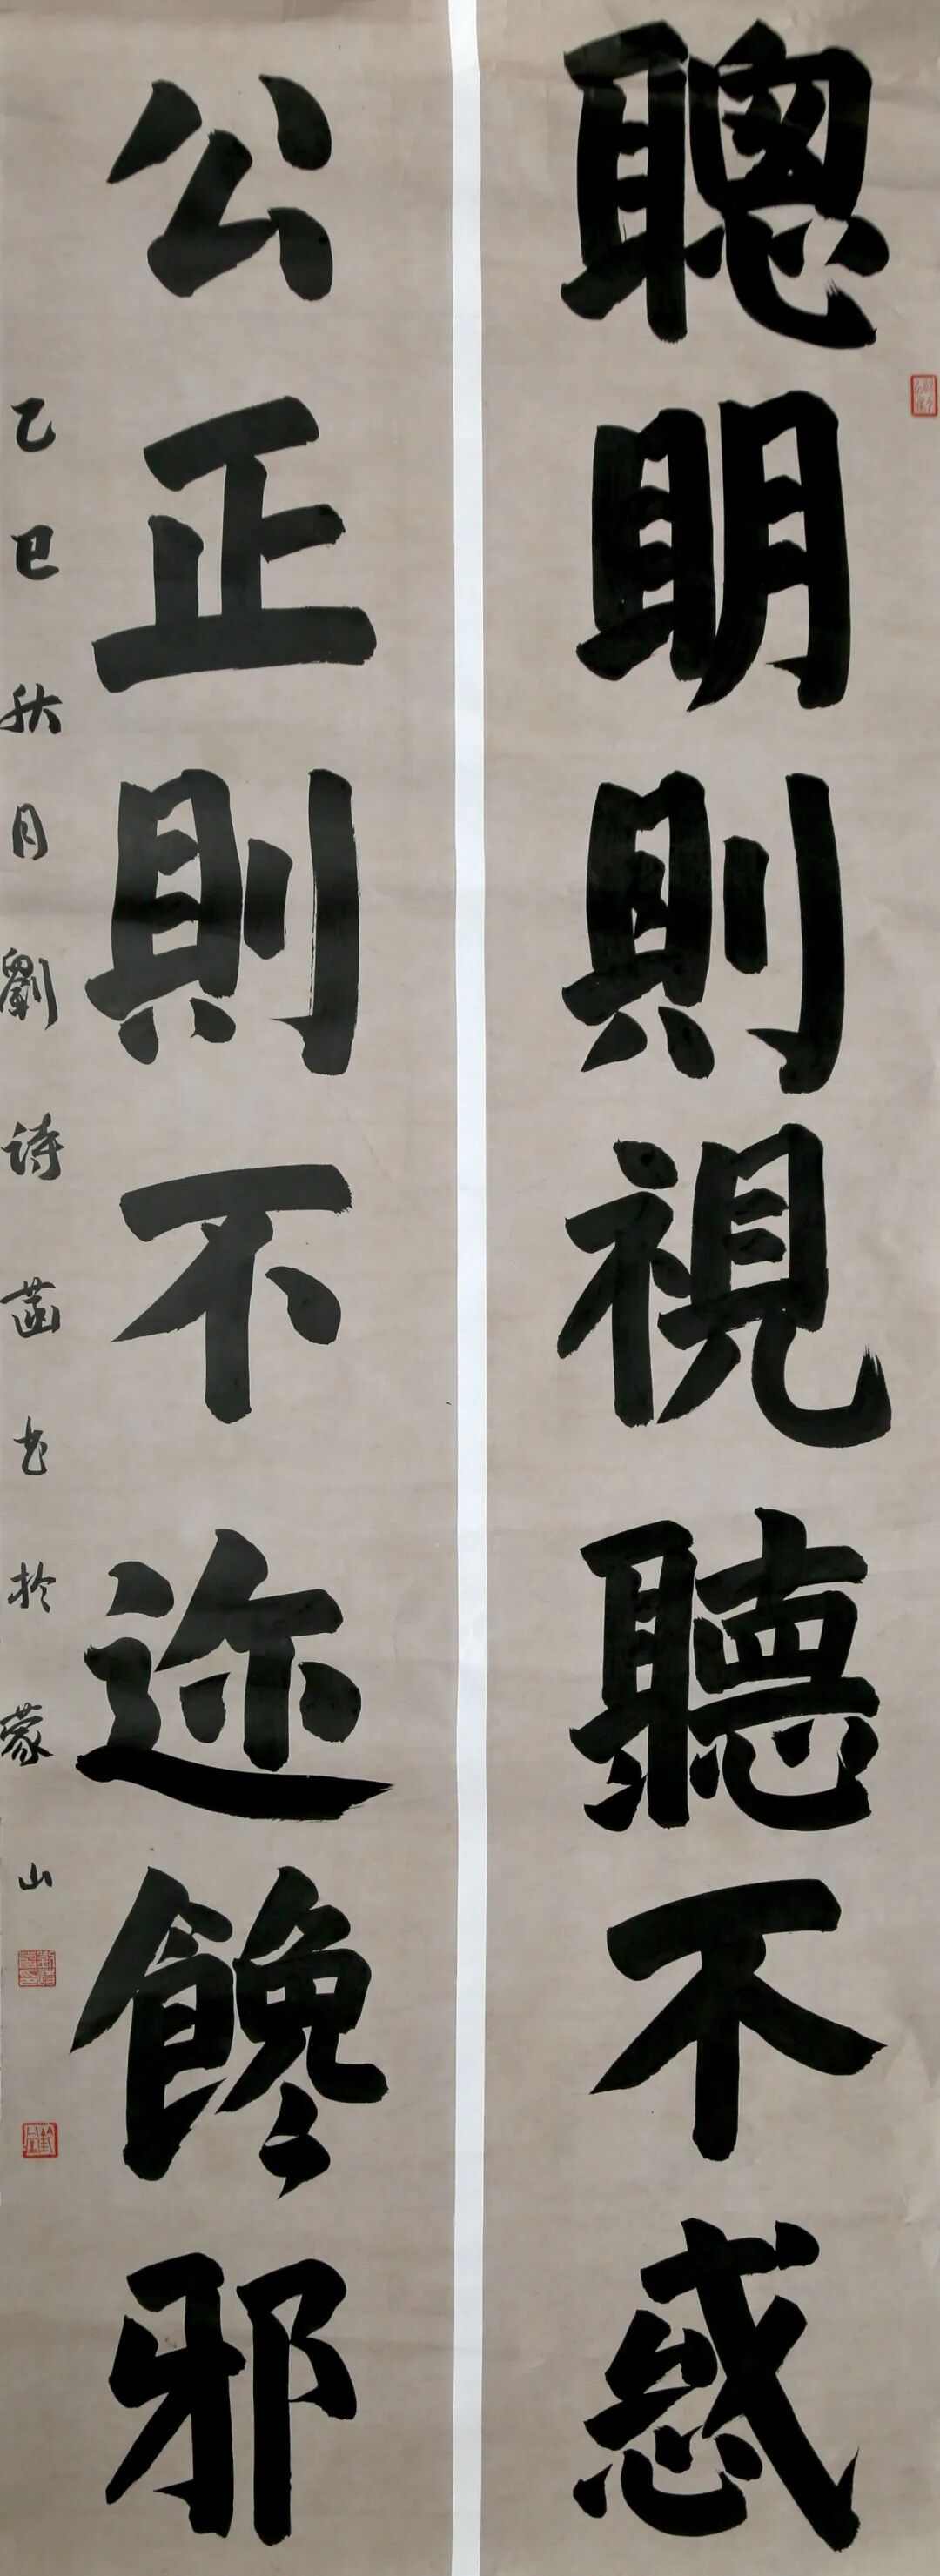 聰明則視聽不惑
公正則不迩馋邪
乙巳秋月劉诗菡书於蒙山